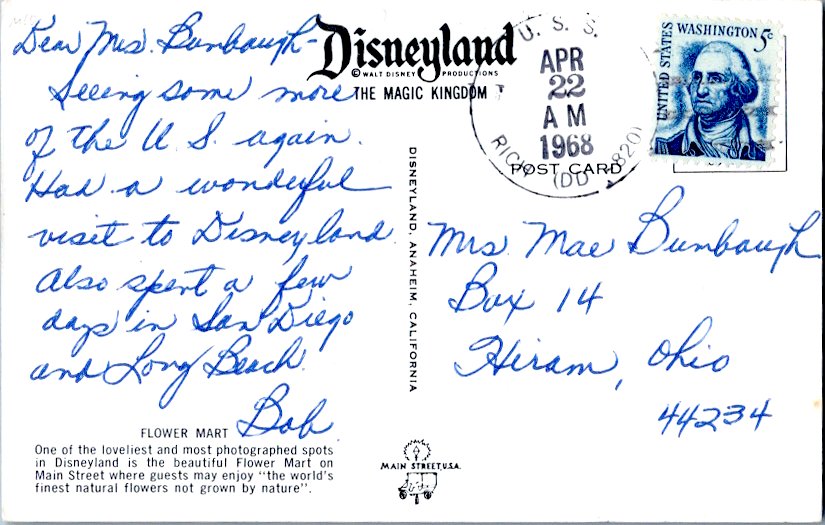 Dear Mrs. Bumbaugh-
Seeing some more
of the U.S. again.
Had a wonderful
visit to Disneyland.
Also spent a few
days in San Diego
and Long Beach.
Bob
FLOWER MART
One of the loveliest and most photographed spots
in Disneyland is the beautiful Flower Mart on
Main Street where guests may enjoy "the world's
finest natural flowers not grown by nature".
Disneyland
© WALT DISNEY PRODUCTIONS
THE MAGIC KINGDOM
DISNEYLAND, ANAHEIM, CALIFORNIA
MAIN STREET, U.S.A.
U. S. S.
APR
22
AM
1968
(DD 820)
POST CARD
UNITED STATES
WASHINGTON 5c
Mrs. Mae Bumbaugh
Box 14
Hiram, Ohio
44234